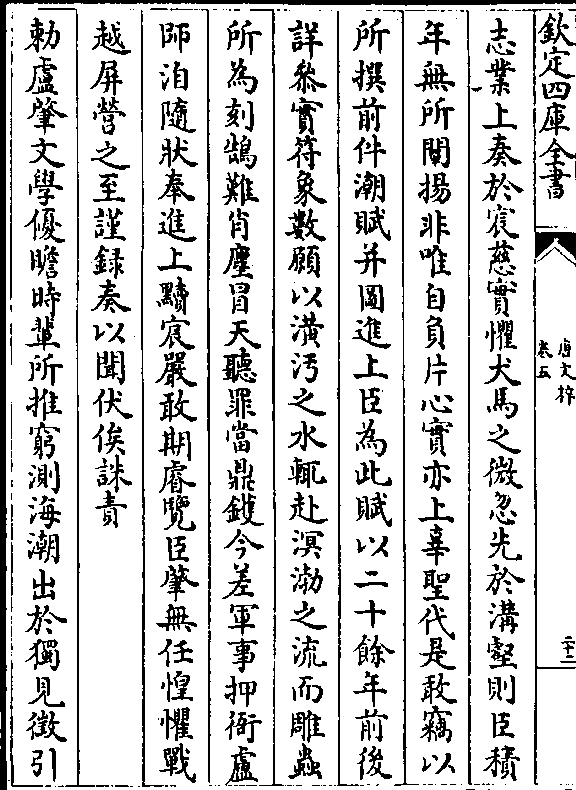 欽定四庫全書
唐文粹
卷五
二十二
志業上奏於宸慈實懼犬馬之微忽先於溝壑則臣積
年無所闡揚非唯自負片心實亦上辜聖代是敢竊以
所撰前件潮賦并圖進上臣為此賦以二十餘年前後
詳叅實符象數願以潢汚之水輒赴溟渤之流而雕蟲
所為刻鵠難肖塵冒天聽罪當鼎鑊今差軍事押衙盧
師洎隨狀奉進上黷宸嚴敢期睿覽臣肇無任惶懼戰
越屏營之至謹録奏以聞伏俟誅責
勅盧肇文學優贍時輩所推窮測海潮出於獨見徵引